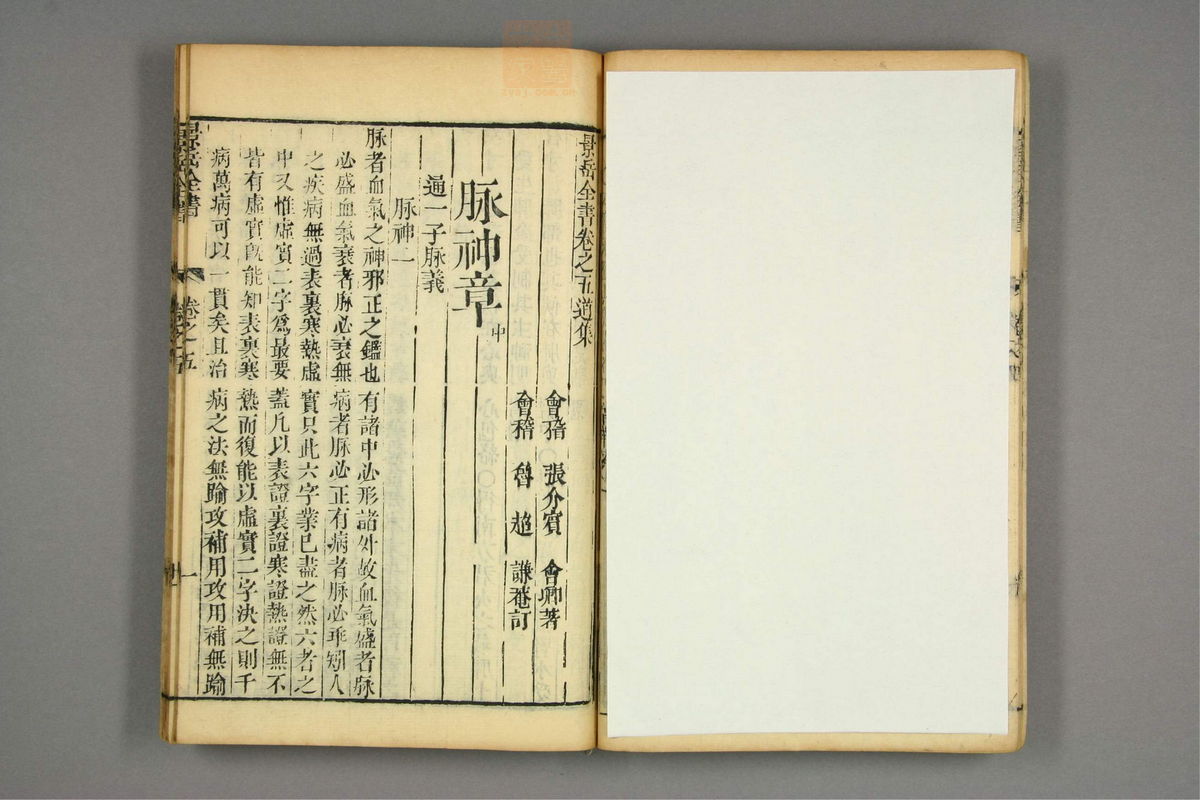 景岳全書卷之五道集
會稽 張介賓 會卿著
會稽 魯超 謙菴訂
脉神章 中
通一子脉義
脉神一
脉者血氣之神邪正之鑑也有諸中必形諸外故血氣盛者脉
必盛血氣衰者脉必衰無病者脉必正有病者脉必乖矧人
之疾病無過表裏寒熱虛實只此六字業已盡之然六者之
中又惟虛實二字為最要蓋凡以表證裏證寒證熱證無不
皆有虛實既能知表裏寒熱而復能以虛實二字決之則千
病萬病可以一貫矣且治病之法無踰攻補用攻用補無踰
景岳全書 卷之五 一
zysj.com.cn